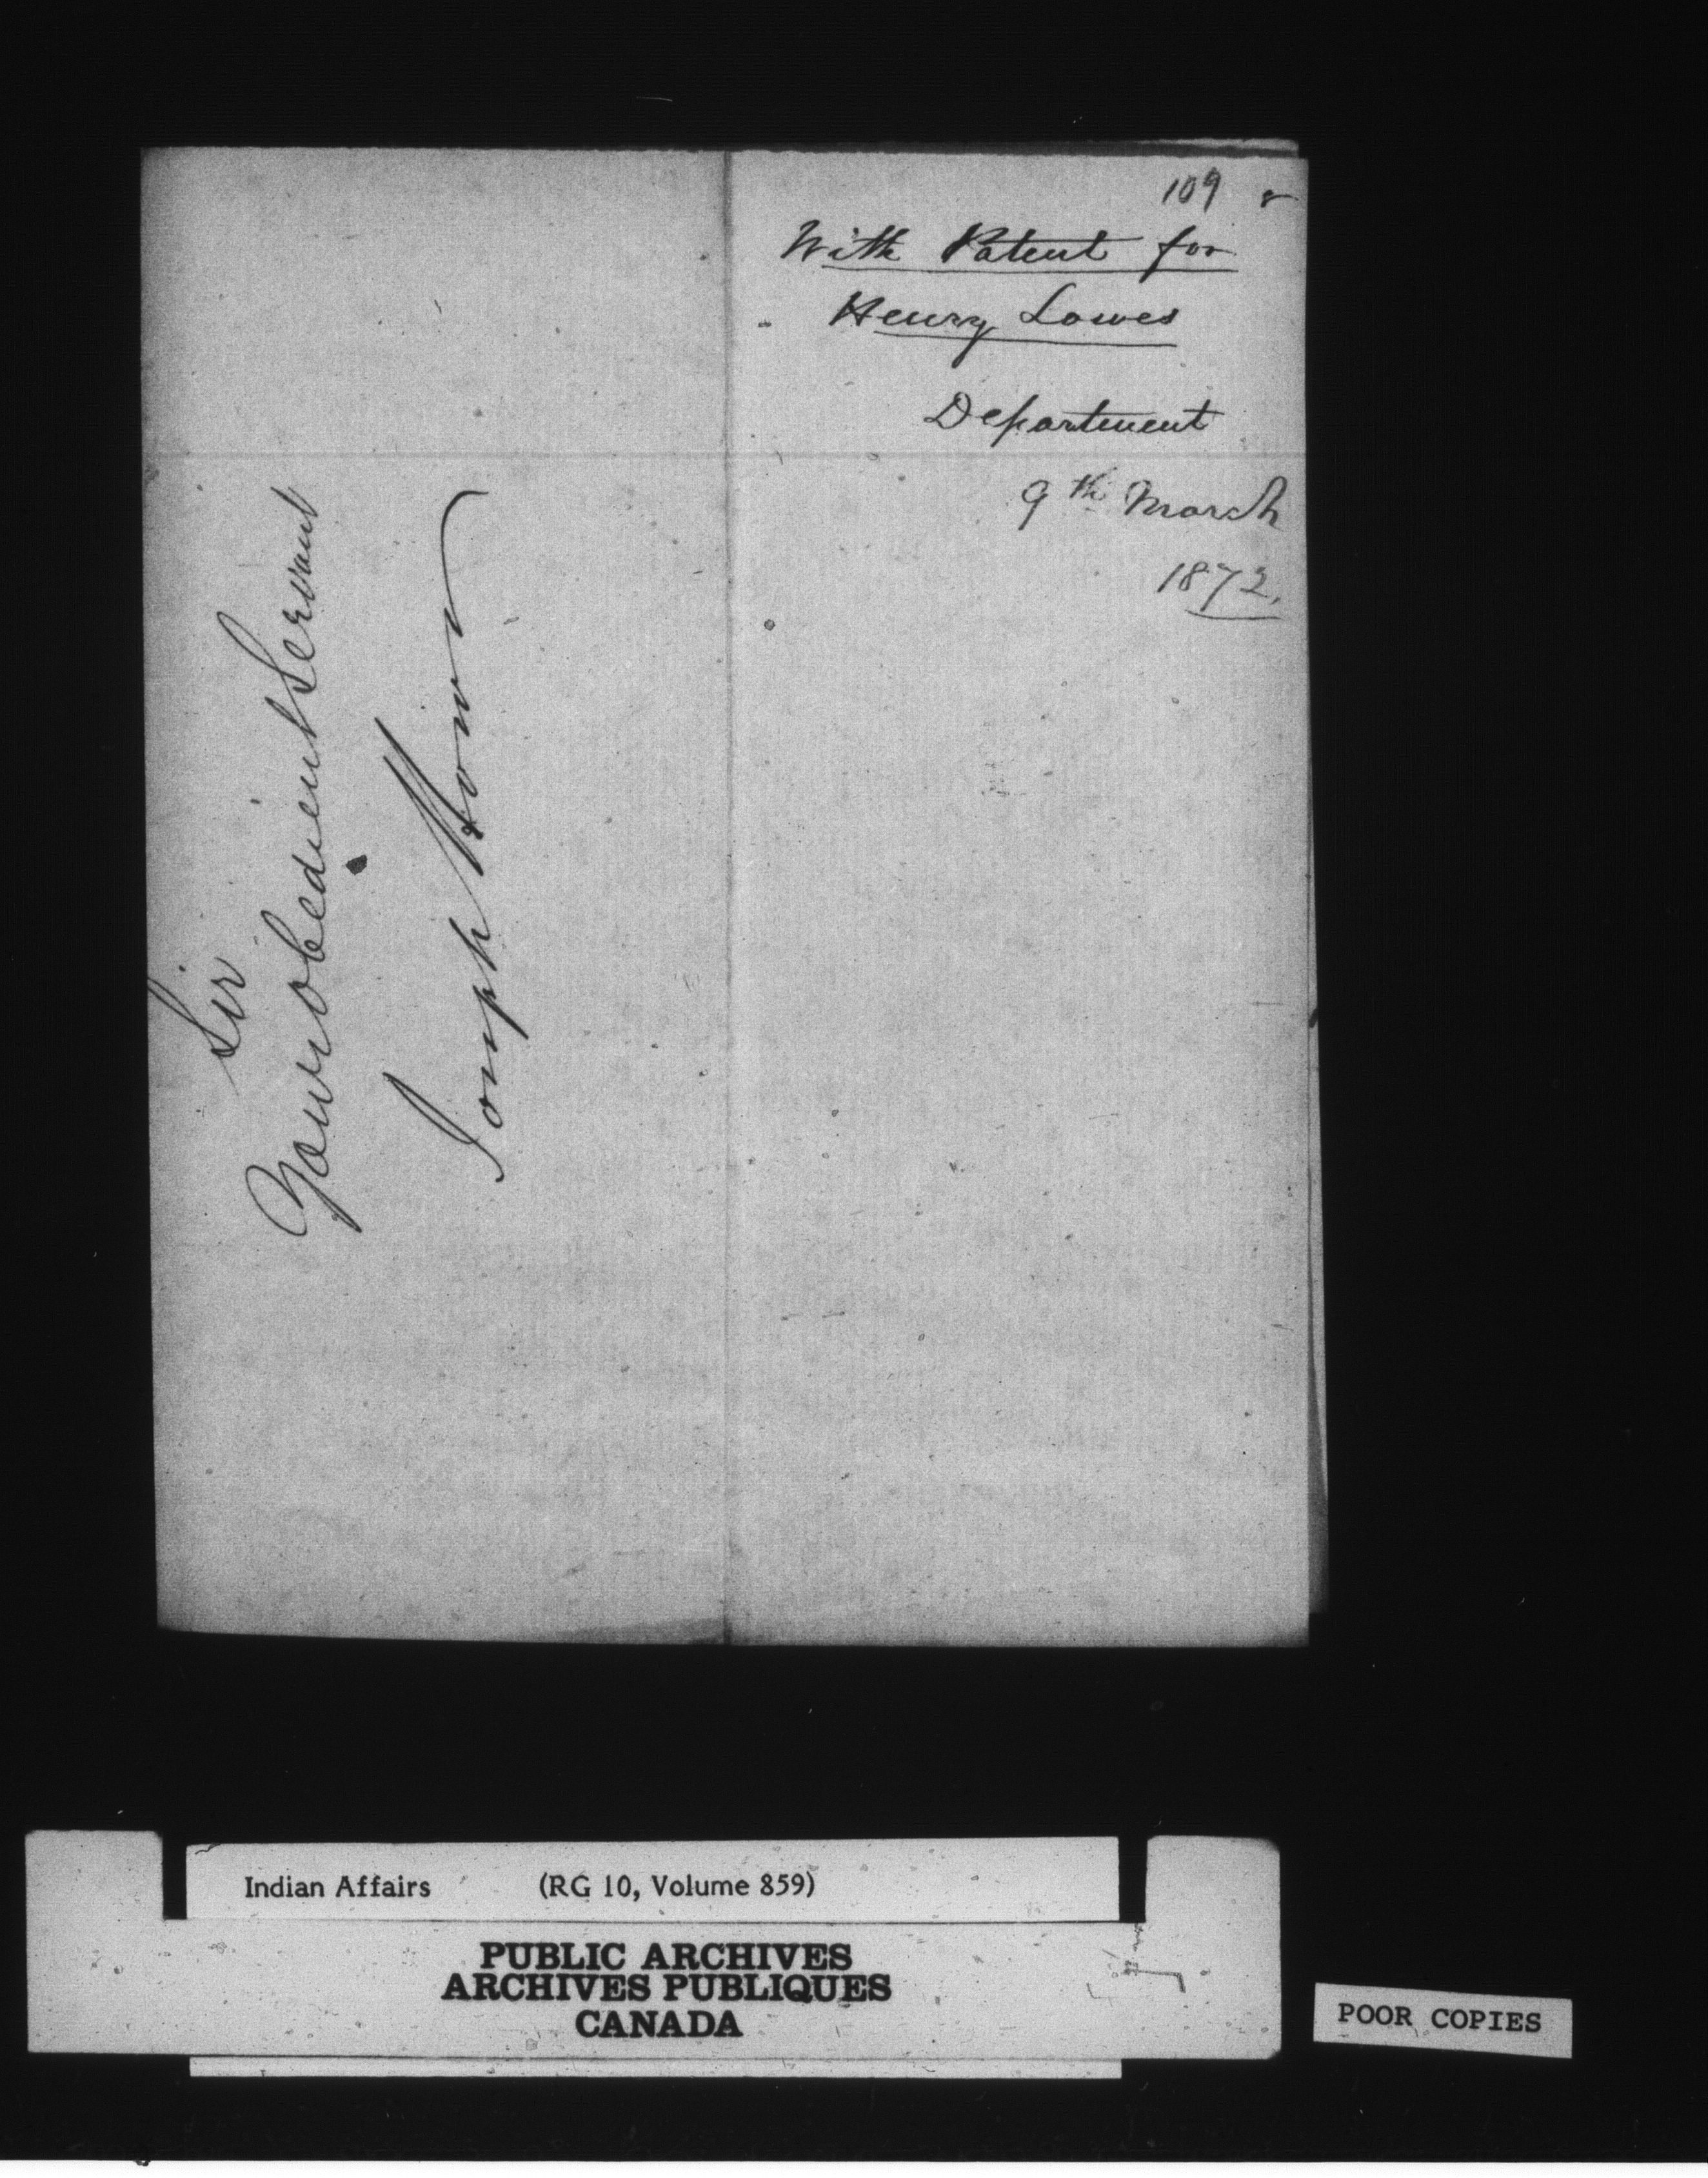 109
With Patent for
Henry Lowes
Department
9th March
1872.
Sir
Your obedient Servant
Joseph Howe
Indian Affairs (RG 10, Volume 859)
PUBLIC ARCHIVES
ARCHIVES PUBLIQUES
CANADA
POOR COPIES